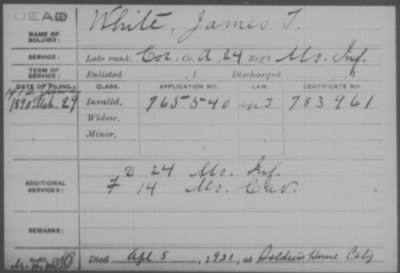 DEAD
NAME OF SOLDIER: White, James T.
SERVICE: Late rank, Cor. Co. A, 24 Reg't Mo. Inf.
TERM OF SERVICE: Enlisted , 1 Discharged , 1
DATE OF FILING. CLASS. APPLICATION NO. LAW. CERTIFICATE NO.
1890 29 Invalid, 765540 J 783961
Widow,
Minor,
ADDITIONAL SERVICES: D 24 Mo. Inf.
F 14 Mo. Cav.
REMARKS:
Died Apl 5, 1921, at Soldiers Home Cal